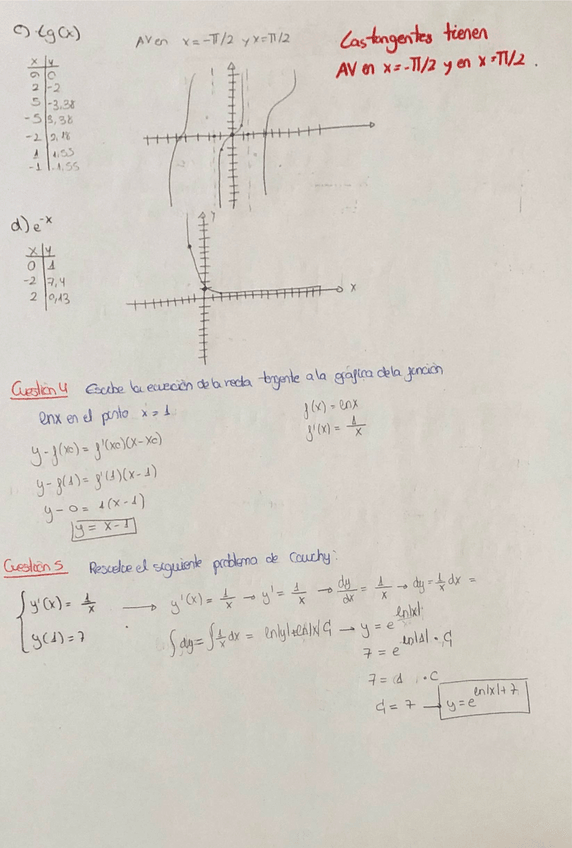 c) tg(x)
AV en x = -π/2 y x = π/2
Las tangentes tienen
AV en x = -π/2 y en x = π/2.
x | y
0 | 0
2 | -2
5 | -3,38
-5 | 3,38
-2 | 2,18
1 | 1,55
-1 | -1,55
d) e^-x
x | y
0 | 1
-2 | 7,4
2 | 0,13
y
x
Cuestión 4 Escribe la ecuación de la recta tangente a la gráfica de la función
lnx en el punto x = 1
f(x) = lnx
f'(x) = 1/x
y - f(x0) = f'(x0)(x - x0)
y - f(1) = f'(1)(x - 1)
y - 0 = 1(x - 1)
y = x - 1
Cuestión 5 Resuelve el siguiente problema de Cauchy:
{ y'(x) = 1/x → y'(x) = 1/x → y' = 1/x → dy/dx = 1/x → dy = 1/x dx =
y(1) = 7
∫dy = ∫1/x dx = ln|y| + ln|x| C → y = e^ln|x|
7 = e^ln|1| · C
7 = 1 · C
C = 7 → y = e^ln|x| + 7